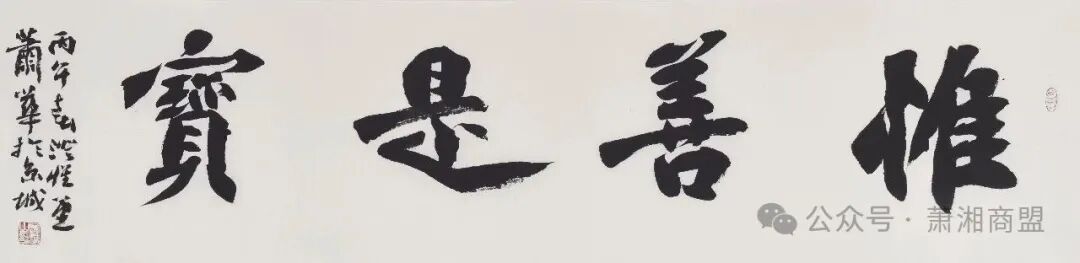 惟善是寶
丙午春
蕭華於京城
公众号·萧湘商盟